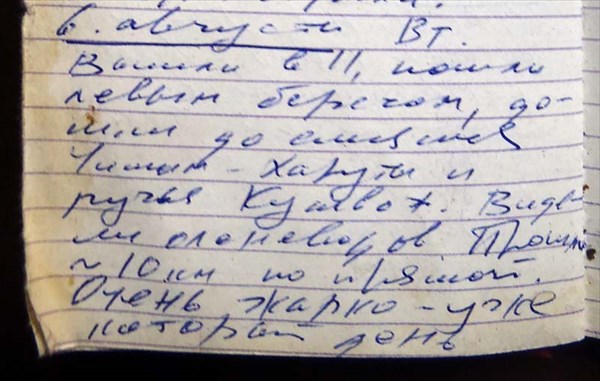 6. августа Вт.
Вышли в 11, пошли
левым берегом, до-
шли до слияния
Чиман-Харуты и
ручья Кузьвож. Виде
ли оленеводов Прошли
~10 км по прямой.
Очень жарко - уже
который день